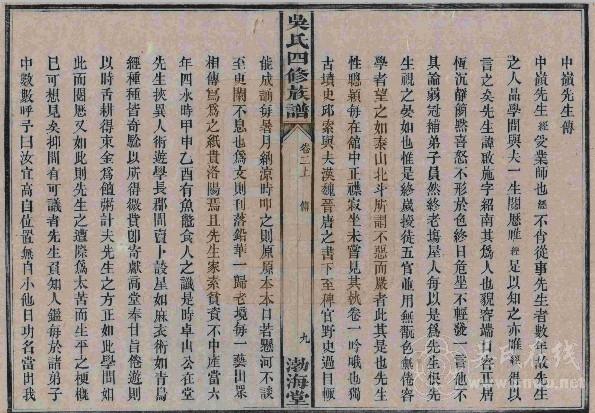 中嶺先生傳
中嶺先生經受業師也經不肖從事先生者數年故先生
之人品學問與夫一生閱歷唯經足以知之亦唯經得以
言之矣先生諱啟施字紹南其爲人也貌容端口若居
恆沉靜簡默喜怒不形於色終日危坐不輕發一言他不
具論弱冠補弟子員然終老場屋人每以是爲先生恨先
生視之晏如也惟是終歲授徒五官並用無翫色無倦容
學者望之如泰山北斗所謂不惡而嚴者此其是也先生
性聰穎每在館中正襟寂坐未嘗見其執卷一吟哦也獨
古墳史邱索與夫漢魏晉唐之書下至稗官野史過目輒
吳氏四修族譜
卷二上
傳
九
渤海堂
能成誦每暑月納涼時叩之則原原本本口若懸河不談
至更闌不息也爲文則刊落鉛華一歸老境每一藝出眾
相傳寫爲之紙貴洛陽焉且先生家素貧資不中產當六
年四水時甲申乙酉有魚龍食人之讖是時卓山公在堂
先生挾異人術遊學長郡間賣卜談星如麻衣術如青烏
經種種皆奇驗以所得微貲卽寄獻高堂奉甘旨倦遊則
以時舌耕得束金爲饘粥計夫先生之方正如此學問如
此而閱歷又如此則先生之遭際爲太苦而生平之梗槪
已可想見矣抑聞有可議者先生負知人鑑每於諸弟子
中數數呼予曰汝宜高自位置無自小他日功名當出我